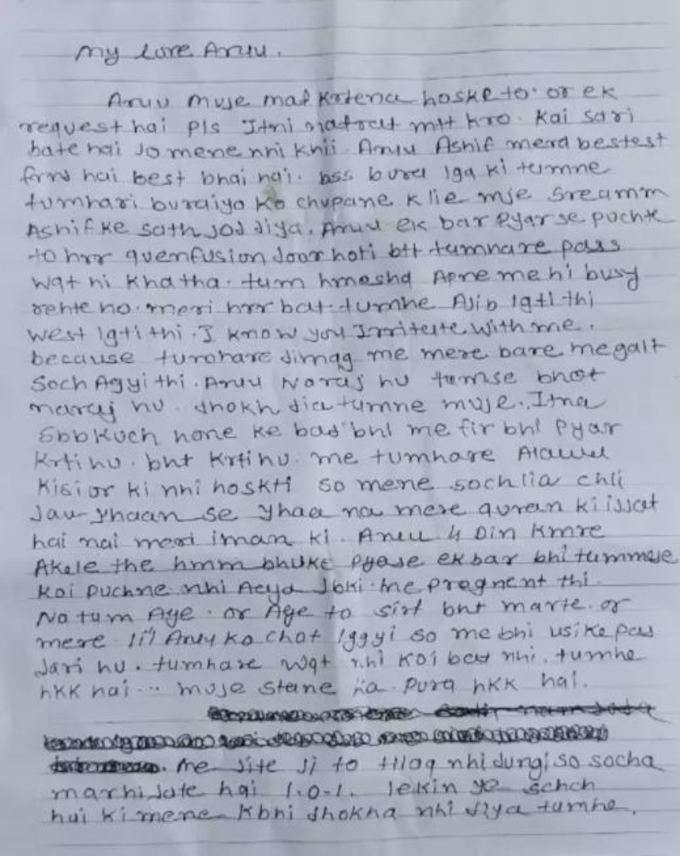 my love Aruu.
Aruu muje maf krtena hoske to. or ek
request hai pls Itni nafrat mtt kro. kai sari
bate hai Jo mene nhi khii. Aruu Ashif mera bestest
frnd hai best bhai hai. bss bura lga ki tumne
tumhari buraiya ko chupane k lie mje Sreamm
Ashif ke sath jod diya. Aruu ek bar pyar se puchte
to hrr quenfusion door hoti btt tumhare pass
wqt hi kha tha. tum hmesha Apne me hi busy
rehte ho. meri hrr bat tumhe Ajib lgti thi
West lgti thi. I know you Irritate with me.
because tumhare dimag me mere bare me galt
Soch Agyi thi. Aruu Naraj hu tumse bhot
naraj hu. dhokh dia tumne muje. Itna
Sbb kuch hone ke bad bhi me fir bhi pyar
krti hu. bht krti hu. me tumhare Alawa
kisi or ki nhi hoskti so mene soch lia chli
Jau yhaan se yhaa na mere quran ki issat
hai nai meri iman ki. Aruu 4 Din kmre
Akele the hmm bhuke pyase ek bar bhi tumm se
koi puchne nhi Aaya Jbki me pregnent thi.
Na tum Aye. or Aye to sirf bht marte. or
mere lil Aruu ko chot lggyi so me bhi usi ke pas
Jari hu. tumhare wqt nhi koi bat nhi. tumhe
hkk hai... muje stane ka pura hkk hai.
me jite ji to tilaq nhi dungi so socha
mar hi Jate hai 1.0.1. lekin ye schch
hai ki mene kbhi dhokha nhi diya tumhe.